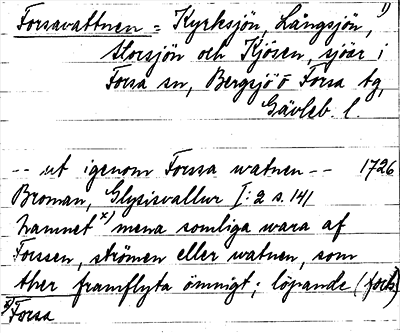 Forsavattnen = Kyrksjön, Långsjön, 1)
Storsjön och Kjösen, sjöar i
Forsa sn, Bergsjö o Forsa tg,
Gävleb. l.
-- ut igenom Forssa watnen -- 1726
Broman, Glysisvallur I: 2 s. 141
hamnet x) mena somliga wara af
Forssen, strömen eller watnen, som
ther framflyta ömnigt; löpande (forts)
x) Forsa